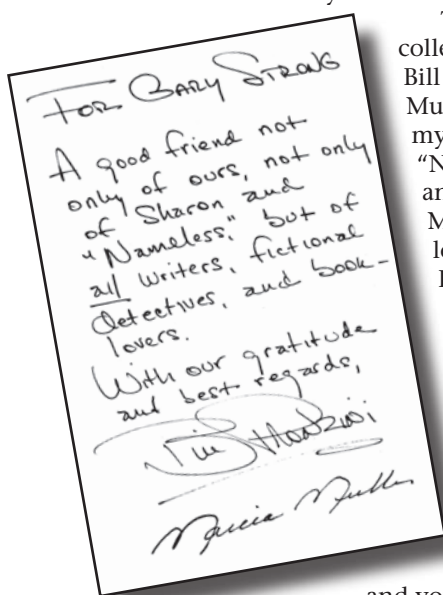 FOR GARY STRONG
A good friend not
only of ours, not only
of Sharon and
"Nameless," but of
all writers, fictional
detectives, and book-
lovers.
With our gratitude
and best regards,
Bill Pronzini
Marcia Muller
colle
Bill
Mu
my
“N
an
M
lo
and yo